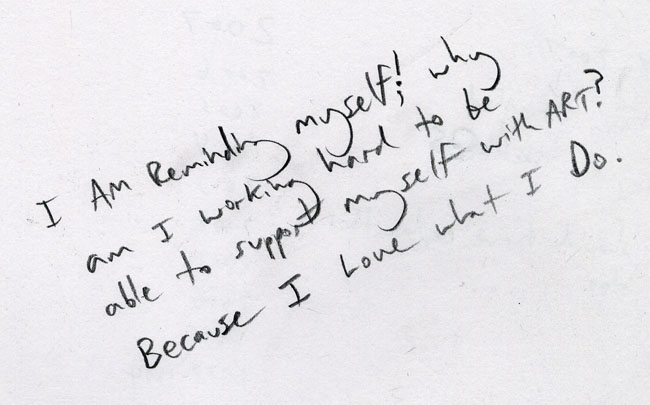 I Am Reminding myself! why
am I working hard to be
able to support myself with ART?
Because I Love what I Do.